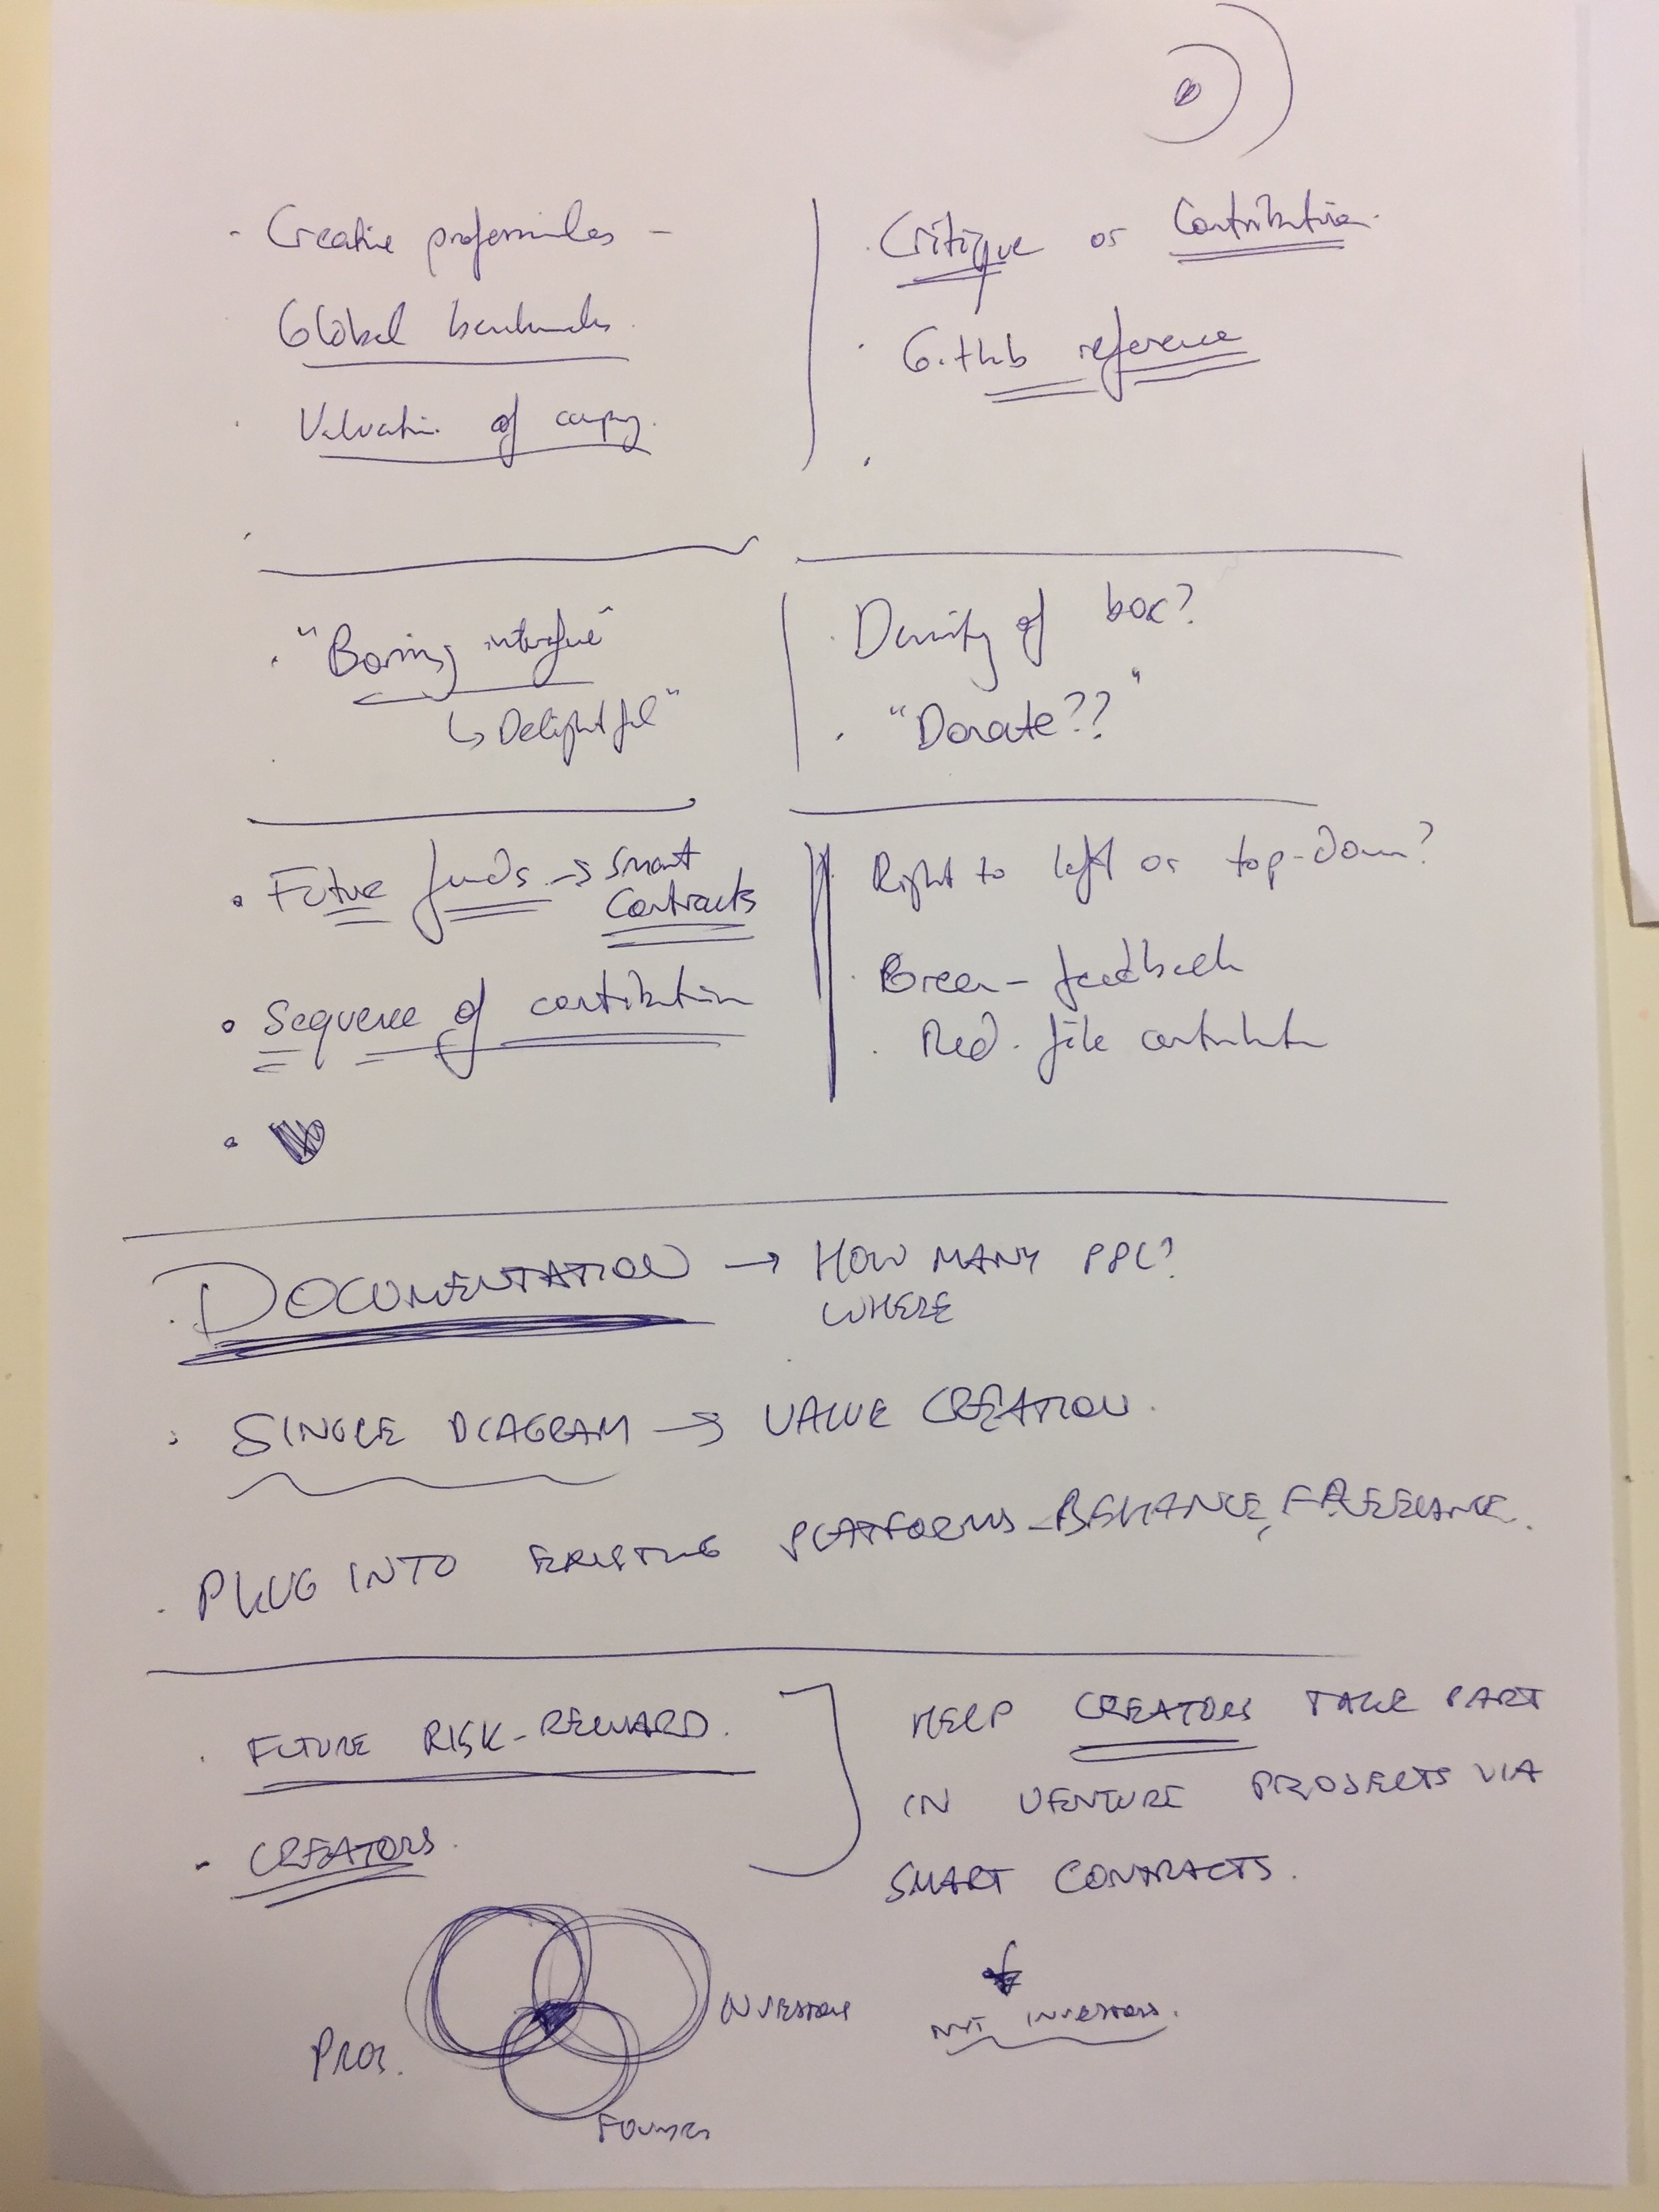 - Creative professionals -
Global benchmarks.
Valuation of company.
· Critique or Contribution.
· Github reference
· "Boring interface"
↳ Delightful"
· Density of box?
· "Donate??"
• Future funds → Smart
Contracts
• Sequence of contribution
· Right to left or top-down?
· Green - feedback
· Red. file contribution
· DOCUMENTATION → HOW MANY PPL?
WHERE
· SINGLE DIAGRAM → VALUE CREATION.
· PLUG INTO EXISTING PLATFORMS - BEHANCE, FREELANCE.
· FUTURE RISK-REWARD.
- CREATORS.
HELP CREATORS TAKE PART
IN VENTURE PROJECTS VIA
SMART CONTRACTS.
INVESTORS
NOT INVESTORS.
PROS.
FOUNDERS